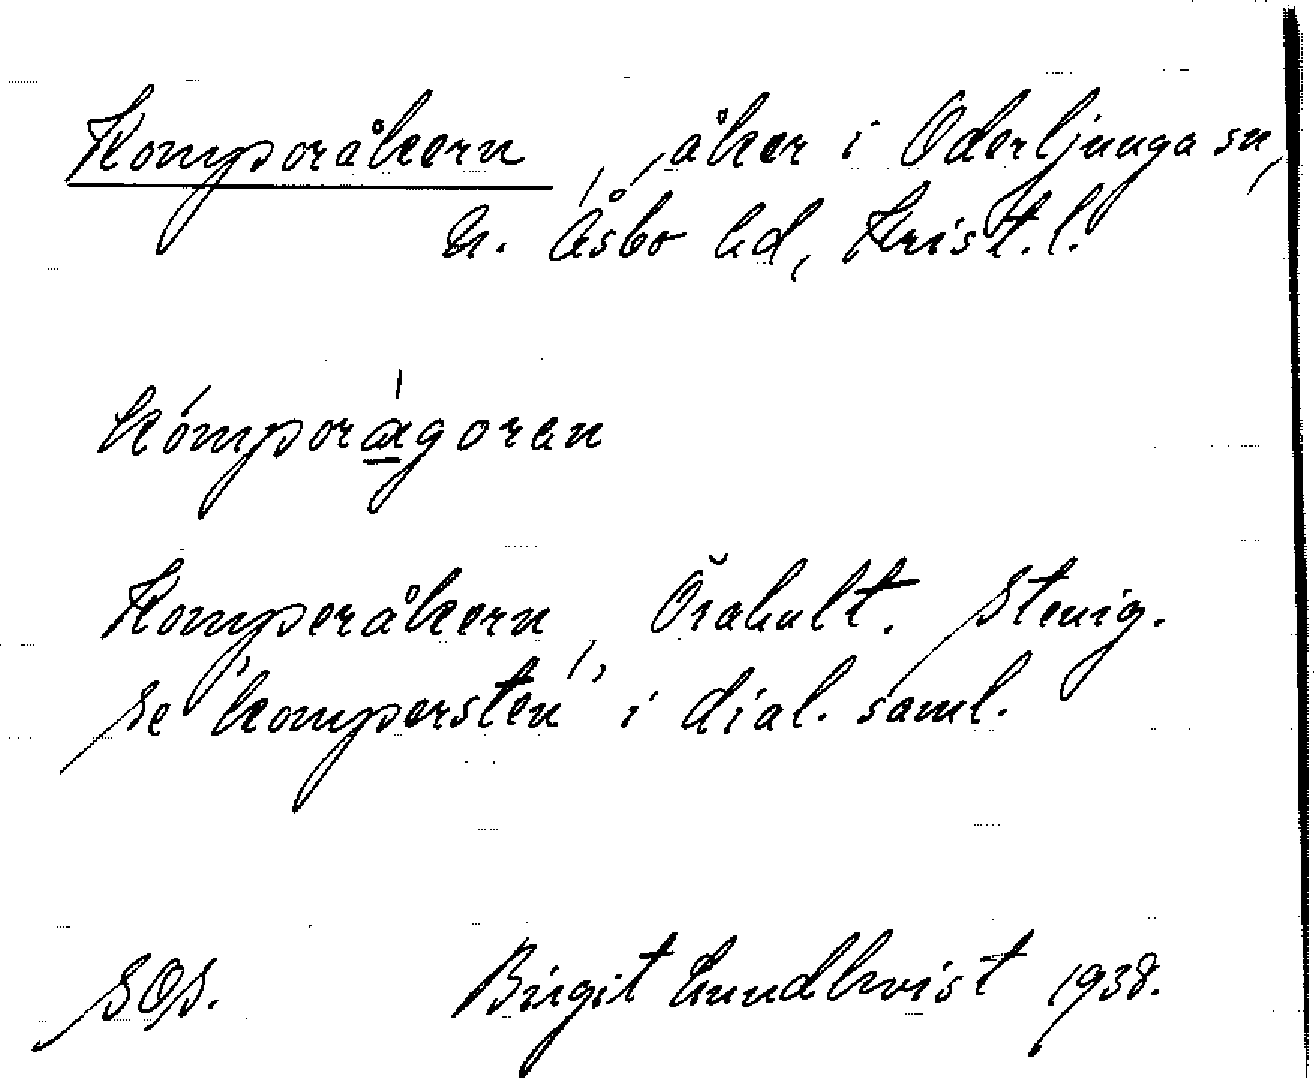 Komporåkern, åker i Oderljunga sn,
N. Åsbo hd, Krist. l.
kómporàgoran
Komperåkern, Örahult. Stenig.
Se "kompersten" i dial. saml.
SOS. Birgit Lundkvist 1938.